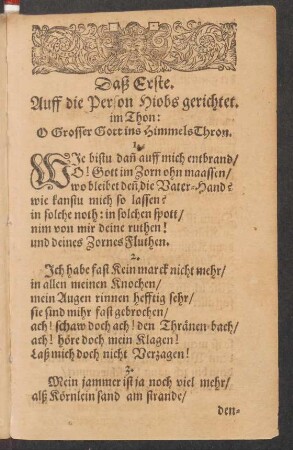 Daß Erste.
Auff die Person Hiobs gerichtet.
im Thon:
O Grosser Gott ins Himmels Thron.
1.
WIe bistu dañ auff mich entbrand/
O! Gott im Zorn ohn maassen/
wo bleibet deñ die Vater-Hand?
wie kanstu mich so lassen?
in solche noth: in solchen spott/
nim von mir deine ruthen!
und deines Zornes Fluthen.
2.
Ich habe fast Kein marck nicht mehr/
in allen meinen Knochen/
mein Augen rinnen hefftig sehr/
sie sind mihr fast gebrochen/
ach! schaw doch ach! den Thränen bach/
ach! höre doch mein Klagen!
Laß mich doch nicht Verzagen!
3.
Mein jammer ist ja noch viel mehr/
alß Körnlein sand am strande/
den-